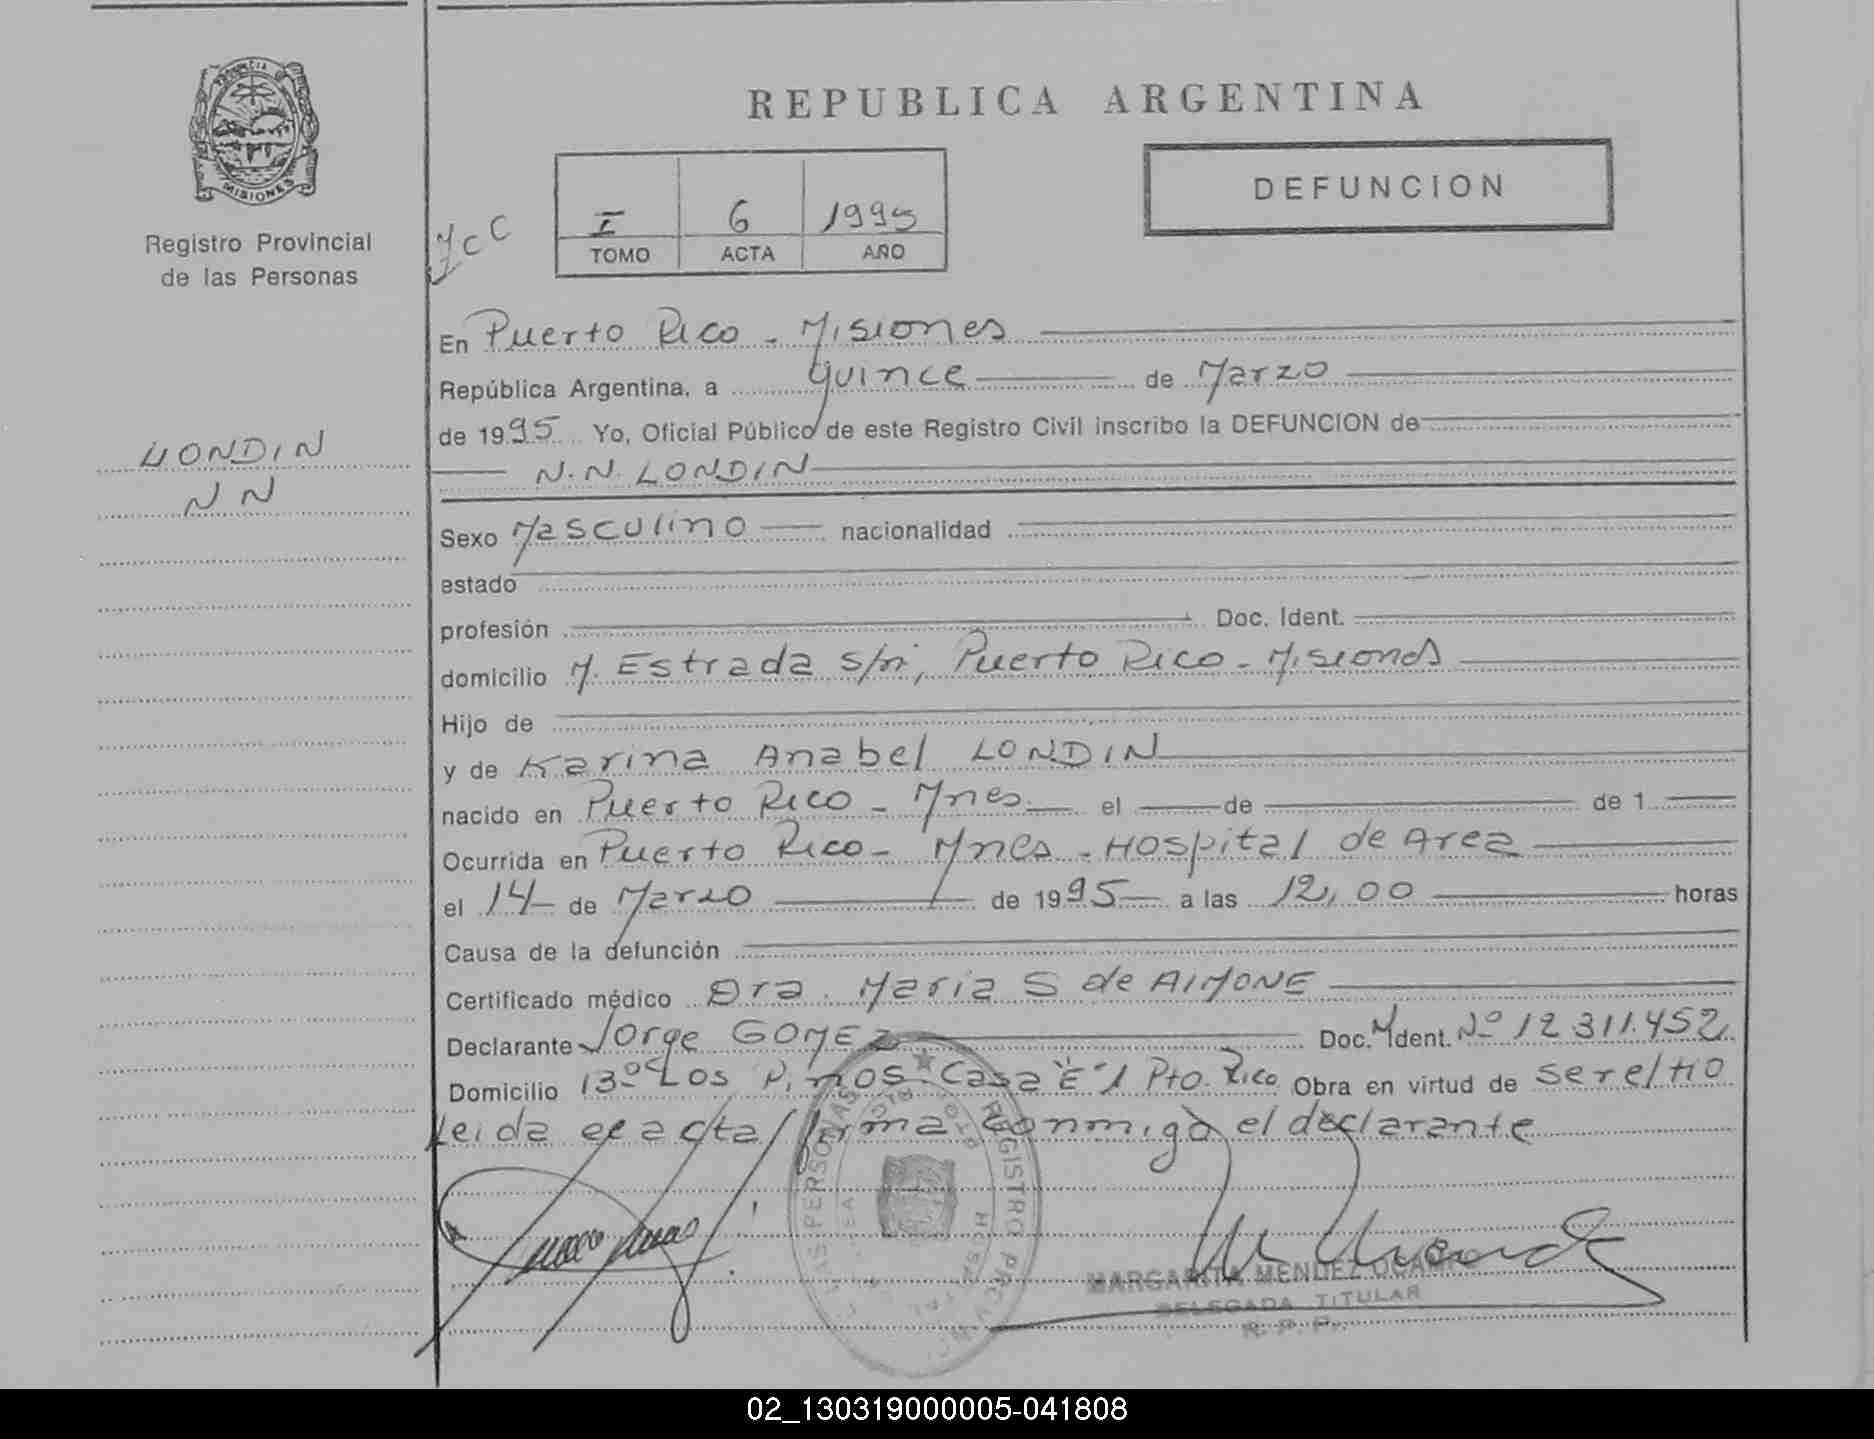 PROVINCIA
MISIONES
Registro Provincial
de las Personas
LONDIN
N N
REPUBLICA ARGENTINA
DEFUNCION
I 6 1995
TOMO ACTA AÑO
En Puerto Rico - Misiones
República Argentina, a quince de Marzo
de 1995 Yo, Oficial Público de este Registro Civil inscribo la DEFUNCION de
N.N. LONDIN
Sexo Masculino nacionalidad
estado
profesión Doc. Ident.
domicilio M. Estrada s/n, Puerto Rico - Misiones
Hijo de
y de Karina Anabel LONDIN
nacido en Puerto Rico - Mnes. el de de 1
Ocurrida en Puerto Rico - Mnes - Hospital de Area
el 14 de Marzo de 1995 a las 12,00 horas
Causa de la defunción
Certificado médico Dra. Maria S de AIMONE
Declarante Jorge GOMEZ Doc. Ident. Nº 12.311.452
Domicilio Los Pinos Casa "E" 1 Pto. Rico Obra en virtud de ser el tio
Leida el acta, firma conmigo el declarante
REGISTRO PROVINCIAL
LAS PERSONAS
HOSPITAL
MARGARITA MENDEZ OCAMPO
DELEGADA TITULAR
R. P. P.
02_130319000005-041808